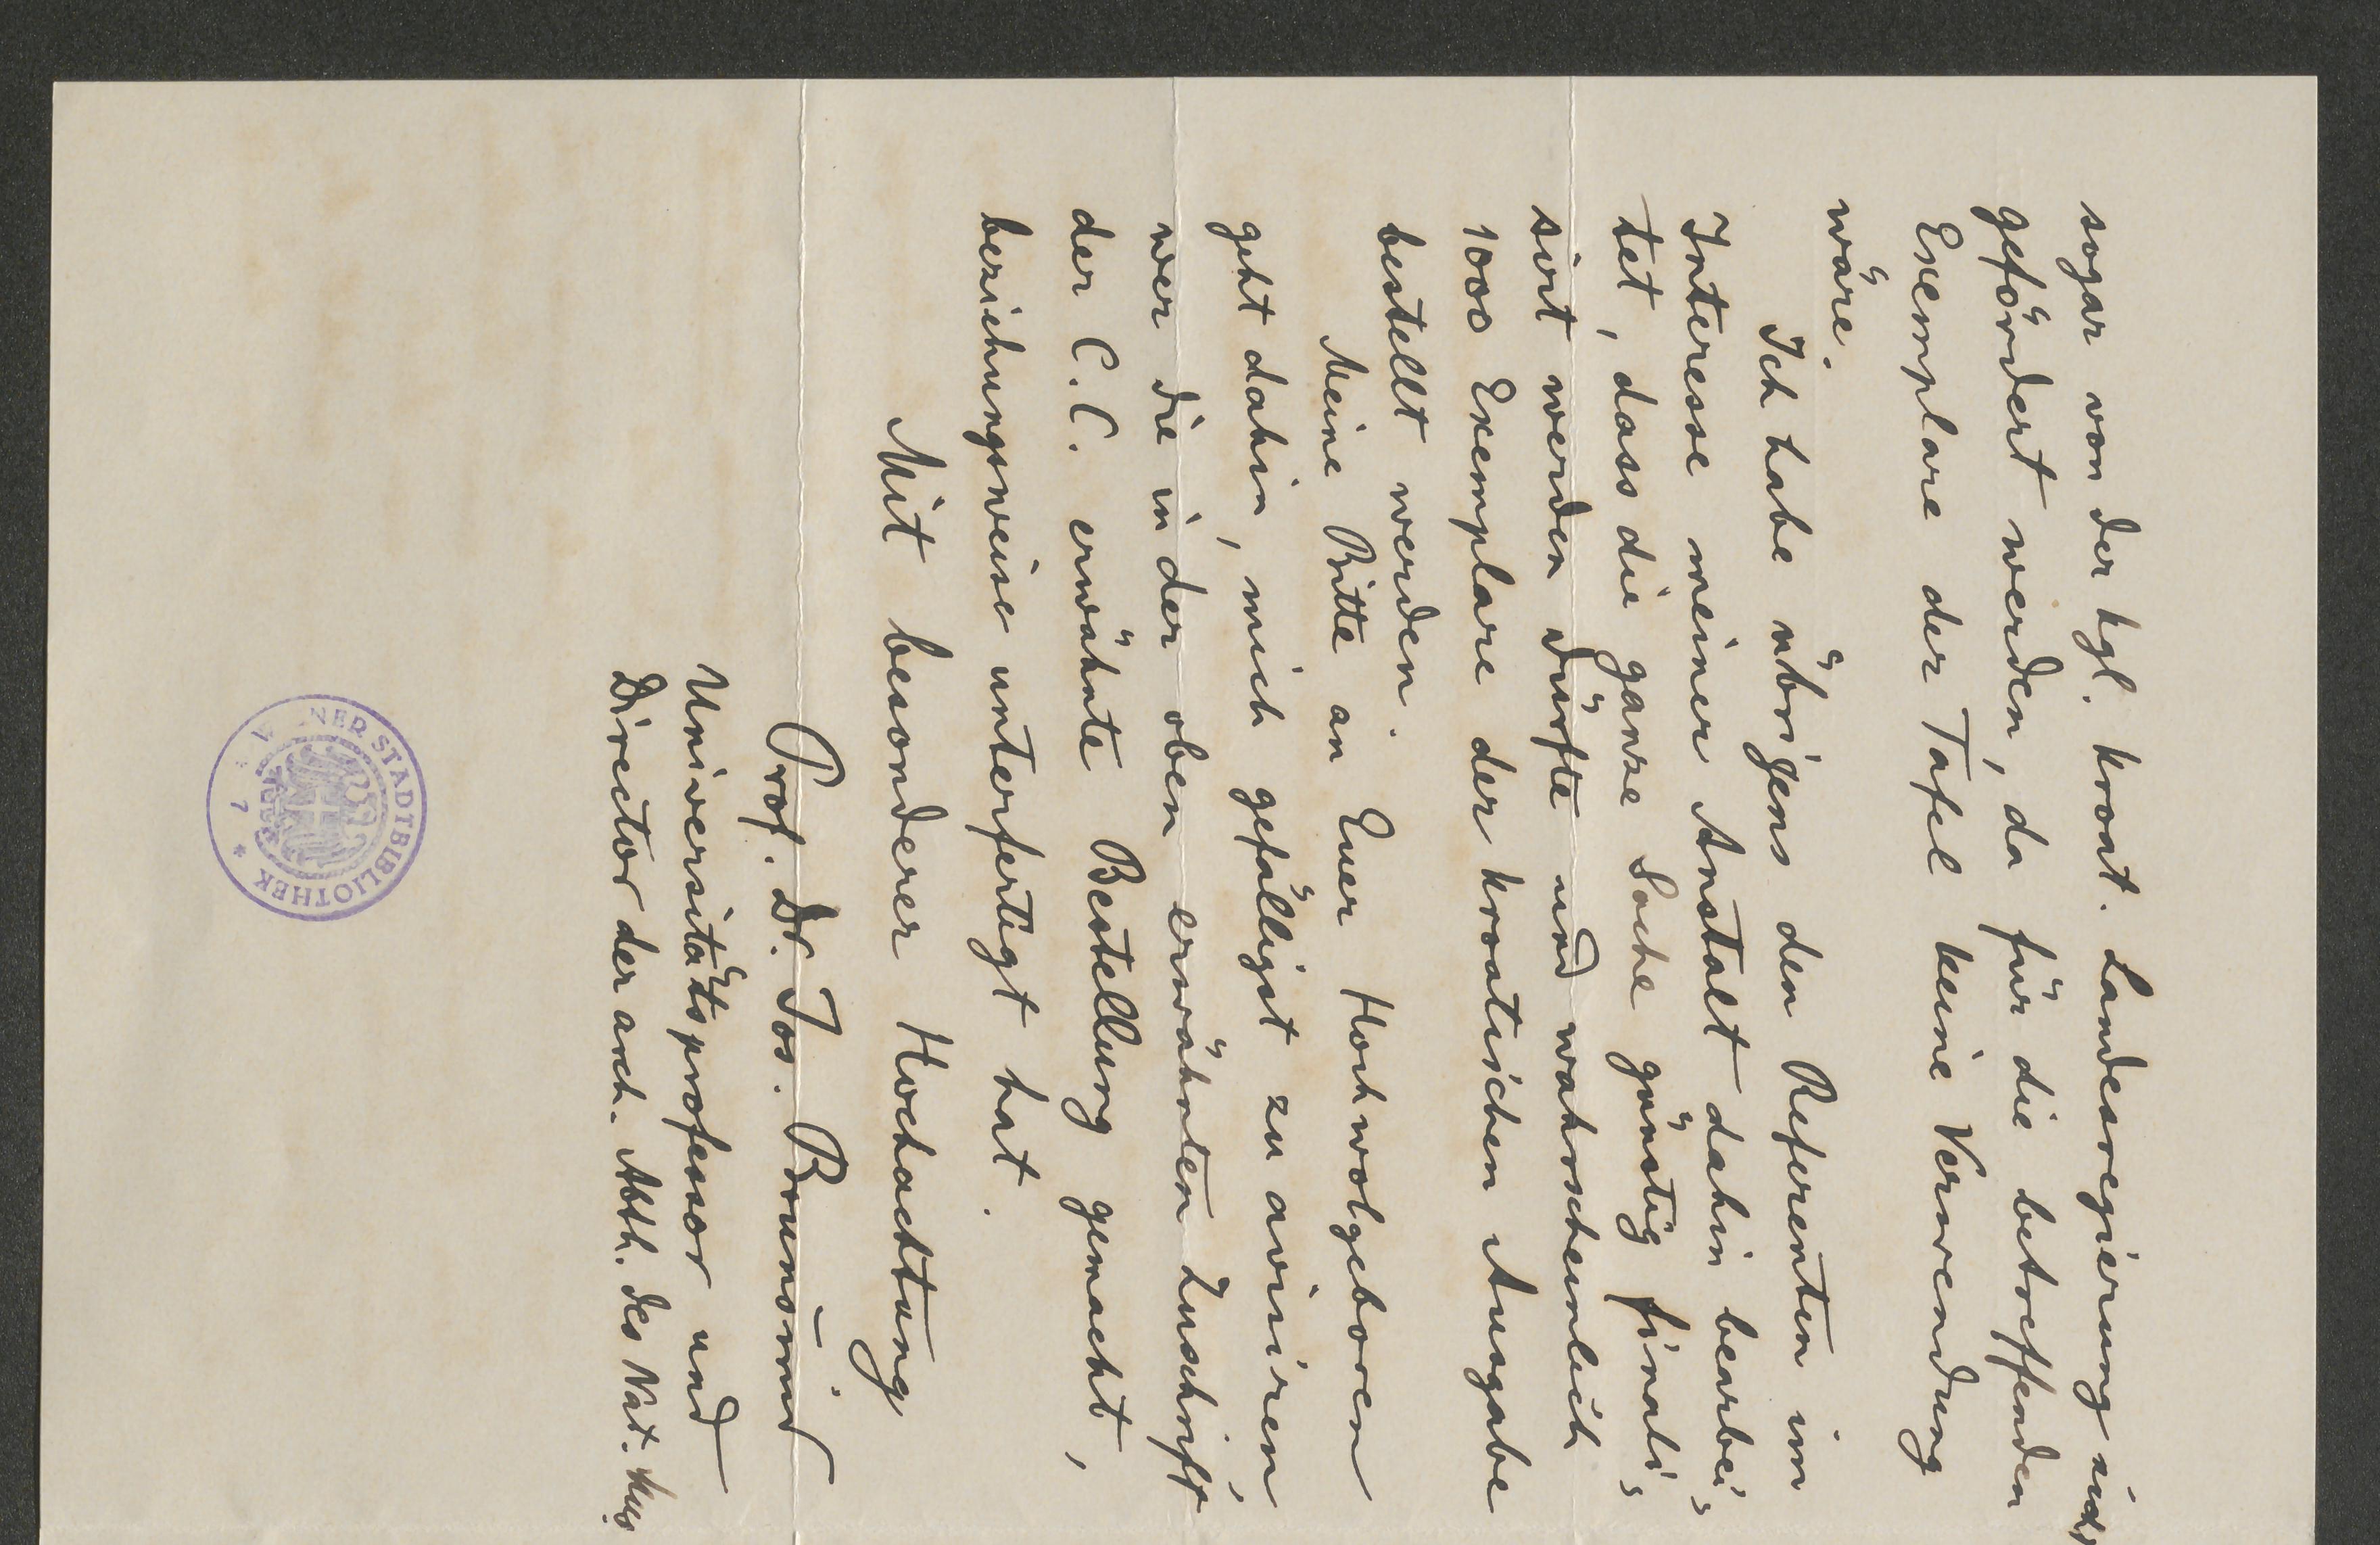 sogar von der kgl. kroat. Landesregierung nicht
gefördert werden, da für die betreffenden
Exemplare der Tafel keine Verwendung
wäre.
Ich habe übrigens den Referenten im
Interesse meiner Anstalt dahin bearbei-
tet, dass die ganze Sache günstig finali-
sirt werden dürfte und wahrscheinlich
1000 Exemplare der kroatischen Ausgabe
bestellt werden.
Meine Bitte an Euer Hochwolgeboren
geht dahin, mich gefälligst zu avisiren,
wer die in der oben erwähnten Zuschrift
der C.C. erwähnte Bestellung gemacht,
beziehungsweise unterfertigt hat.
Mit besonderer Hochachtung
Prof. Dr. Jos. Brunšmid
Universitätsprofessor und
Director der arch. Abth. des Nat. Mus.
WIENER STADTBIBLIOTHEK
7